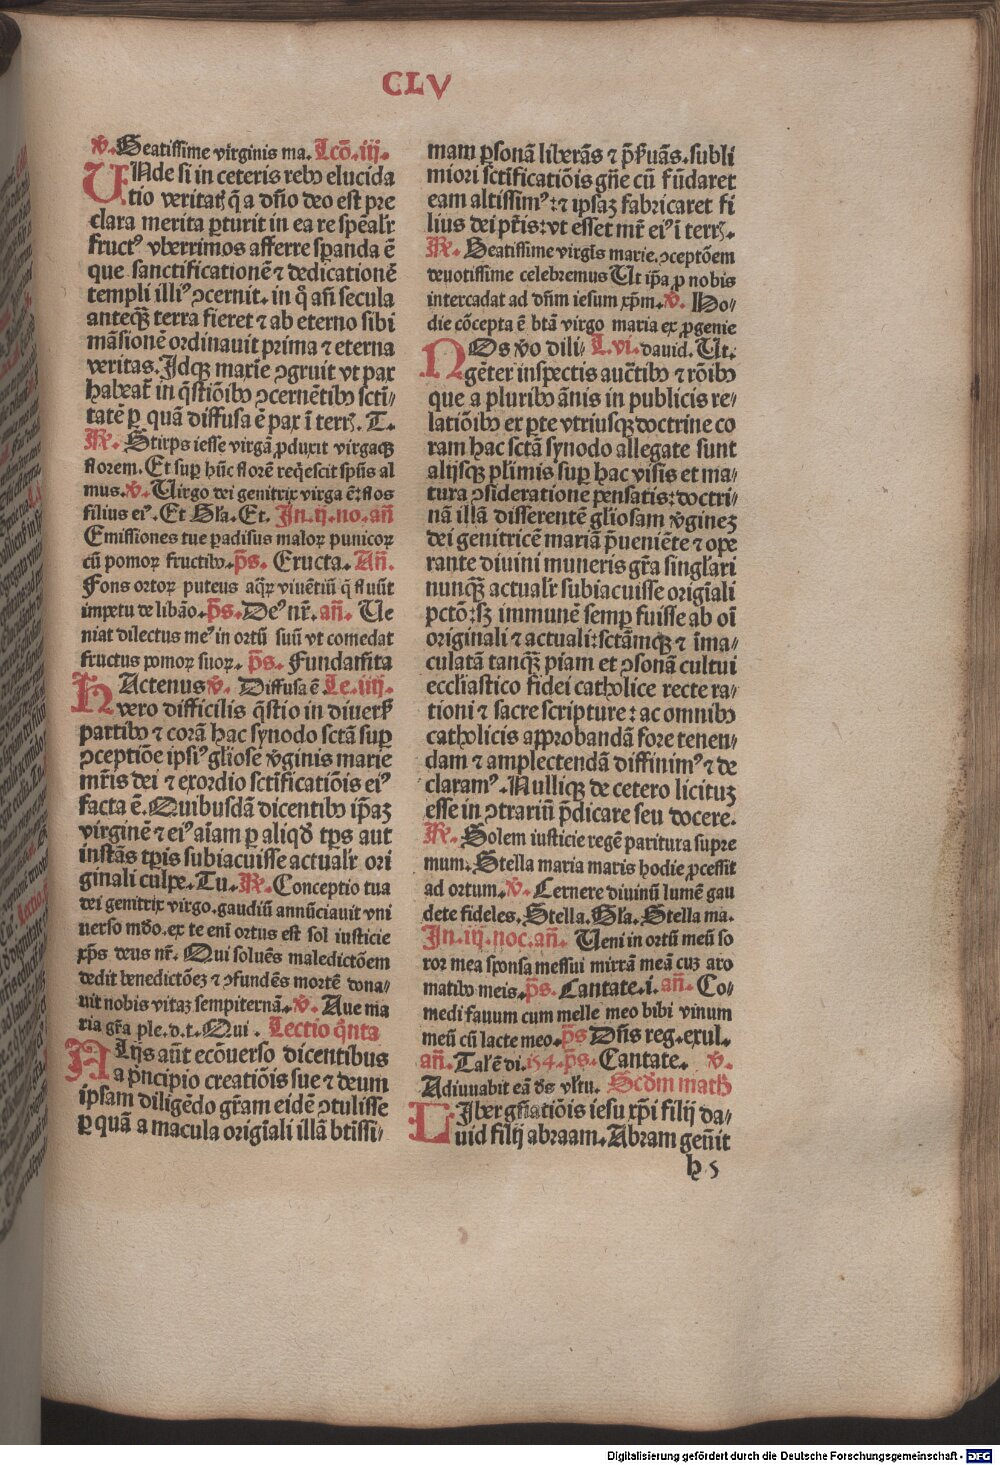 CLV
v̄. Beatissime virginis ma. Lcō. iij.
UNde si in ceteris reb9 elucida
tio veritatꝭ q̄ a dn̄o deo est pre
clara merita ꝑturit in ea re spēalr̄
fructꝰ vberrimos afferre sꝑanda ē
que sanctificationē ⁊ dedicationē
templi illiꝰ ꝯcernit. in q̄ an̄ secula
anteqꝫ terra fieret ⁊ ab eterno sibi
māsionē ordinauit prima ⁊ eterna
veritas. Idqꝫ marīe ꝯgruit vt pax
habeat̄ in q̄stiōib9 ꝯcernētib9 scti/
tatē ꝑ quā diffusa ē pax ī terrꝭ. T.
R̄. Stirps iesse virgā ꝓduxit virgaqꝫ
florem. Et suꝑ hūc florē reqͥescit spūs al
mus. v̄. Uirgo dei genitrix virga ē: flos
filius eiꝰ. Et Gl̄a. Et. In. ij. no. an̄
Emissiones tue ꝑadisus maloꝝ punicoꝝ
cū pomoꝝ fructib9. p̄s. Eructa. An̄.
Fons ortoꝝ puteus aq̄ꝝ viuētiū q̄ fluūt
impetu de libāo. p̄s. Deꝰ nr̄. an̄. Ue
niat dilectus meꝰ in ortū suū vt comedat
fructus pomoꝝ suoꝝ. p̄s. Fundam̄ta
HActenus v̄. Diffusa ē. Le. iiij.
vero difficilis q̄stio in diuersꝭ
partib9 ⁊ corā hac synodo sctā suꝑ
ꝯceptiōe ipsiꝰ gliose v̄ginis marie
mr̄is dei ⁊ exordio sctificatiōis eiꝰ
facta ē. Quibusdā dicentib9 ip̄aꝫ
virginē ⁊ eiꝰ aīam ꝑ aliqđ tꝑs aut
instās tꝑis subiacuisse actualr̄ ori
ginali culpe. Tu. R̄. Conceptio tua
dei genitrix virgo. gaudiū annūciauit vni
uerso mūdo. ex te enī ortus est sol iusticie
xp̄s deus nr̄. Qui soluēs maledictōem
dedit benedictōeꝫ ⁊ ꝯfundēs mortē dona/
uit nobis vitaꝫ sempiternā. v̄. Aue ma
ria gr̄a ple. d. t. Qui. Lectio q̄nta
ALijs aūt ecōuerso dicentibus
a pͥncipio creatiōis sue ⁊ deum
ipsam diligēdo gr̄am eidē ꝯtulisse
ꝑ quā a macula origīali illā btīssi/
mam ꝑsonā liberās ⁊ p̄ẜuās. subli
miori sctīficatiōis gn̄e cū fūdaret
eam altissimꝰ: ⁊ ipsaꝫ fabricaret fi
lius dei pr̄is: vt esset mr̄ eiꝰ ī terrꝭ.
R̄. Beatissime virgīs marie. ꝯceptōem
deuotissime celebremus Ut ip̄a ꝓ nobis
intercedat ad dn̄m iesum xp̄m. v̄. Ho/
die cōcepta ē btā virgo maria ex ꝓgenie
NOs v̊o dili/ L. vi. dauid. Ut.
gēter inspectis auctīb9 ⁊ rōib9
que a plurib9 ānis in publicis re/
latiōib9 er ꝑte vtriusqꝫ doctrine co
ram hac sctā synodo allegate sunt
alijsqꝫ plīmis suꝑ hac visis et ma/
tura ꝯsideratione pensatis: doctri/
nā illā differentē gliosam v̄gineꝫ
dei genitricē mariā p̄ueniēte ⁊ ope
rante diuini muneris gr̄a singl̄ari
nunqꝫ actualr̄ subiacuisse origīali
pctō: sꝫ immunē semꝑ fuisse ab oī
originali ⁊ actuali: sctāmqꝫ ⁊ īma/
culatā tanqꝫ piam et ꝯsonā cultui
eccliastico fidei catholice recte ra/
tioni ⁊ sacre scripture: ac omnib9
catholicis approbandā fore tenen/
dam ⁊ amplectendā diffinimꝰ ⁊ de
claramꝰ. Nulliqꝫ de cetero licituꝫ
esse in ꝯtrariū p̄dicare seu docere.
R̄. Solem iusticie regē paritura supre
mum. Stella maria maris hodie ꝓcessit
ad ortum. v̄. Cernere diuinū lumē gau
dete fideles. Stella. Gl̄a. Stella ma.
In. iij. noc. an̄. Ueni in ortū meū so
ror mea sponsa messui mirrā meā cuꝫ aro
matib9 meis. p̄s. Cantate. i. an̄. Co/
medi fauum cum melle meo bibi vinum
meū cū lacte meo. p̄s Dn̄s reg. exul.
an̄. Tal̄ ē di. 154. p̄s. Cantate. v̄.
Adiuuabit eā d̄s vl̄tu. Scd̄m math̄
LIber gn̄atiōis iesu xp̄i filij da/
uid filij abraam. Abram genūit
h 5
Digitalisierung gefördert durch die Deutsche Forschungsgemeinschaft - DFG